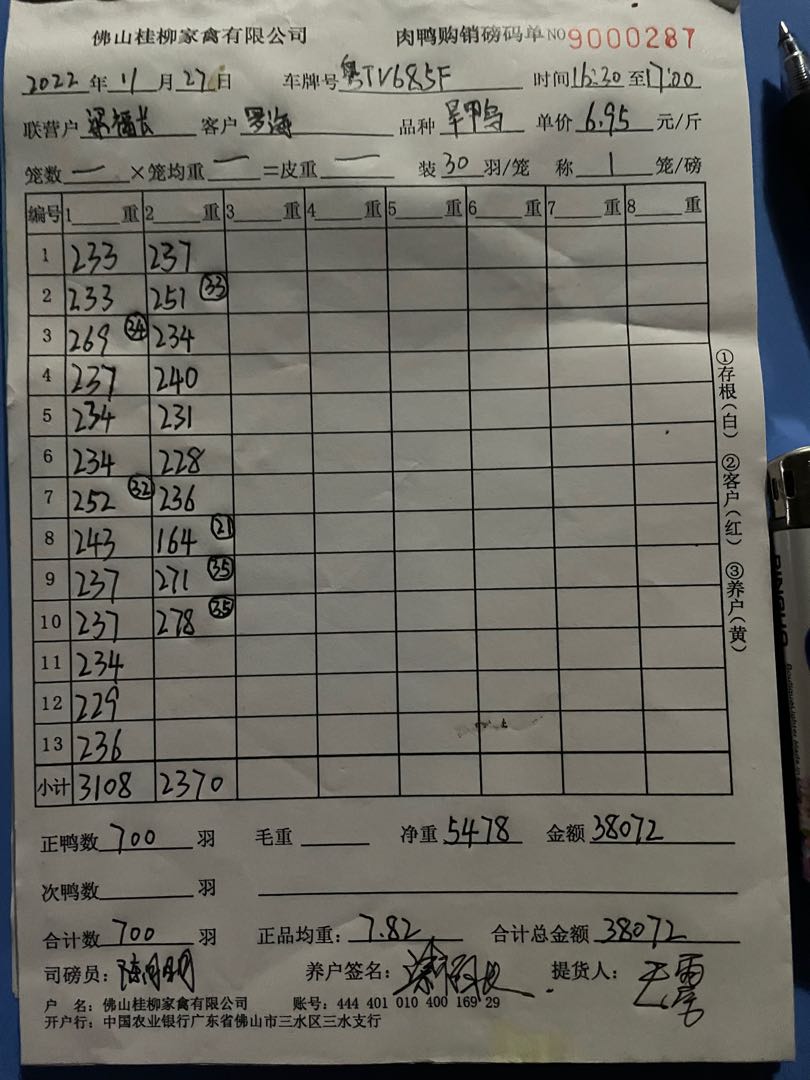 佛山桂柳家禽有限公司 肉鸭购销磅码单 NO 9000287
2022 年 11 月 27 日 车牌号 粤TV685F 时间 16:30 至 17:00
联营户 梁福长 客户 罗海 品种 单价 6.95 元/斤
笼数 一 ×笼均重 一 =皮重 一 装 30 羽/笼 称 1 笼/磅
编号 1 重 2 重 3 重 4 重 5 重 6 重 7 重 8 重
1 233 237
2 233 251 ㉝
3 269 ㉞ 234
4 237 240
5 234 231
6 234 228
7 252 ㉜ 236
8 243 164 ㉑
9 237 271 ㉟
10 237 278 ㉟
11 234
12 229
13 236
小计 3108 2370
①存根(白) ②客户(红) ③养户(黄)
正鸭数 700 羽 毛重 净重 5478 金额 38072
次鸭数 羽
合计数 700 羽 正品均重: 7.82 合计总金额 38072
司磅员: 养户签名: 梁福长 提货人:
户 名: 佛山桂柳家禽有限公司 账号: 444 401 010 400 169 29
开户行: 中国农业银行广东省佛山市三水区三水支行